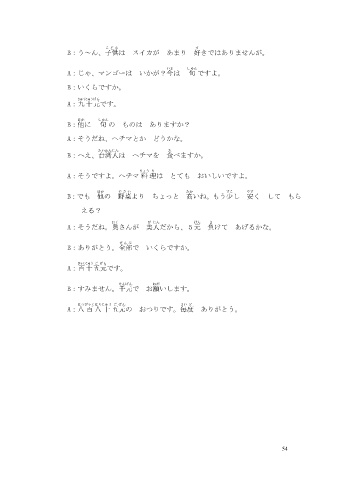 B：う〜ん、子供は　スイカが　あまり　好きではありませんが。
A：じゃ、マンゴーは　いかが？今は　旬ですよ。
B：いくらですか。
A：九十元です。
B：他に　旬の　ものは　ありますか？
A：そうだね、ヘチマとか　どうかな。
B：へえ、台湾人は　ヘチマを　食べますか。
A：そうですよ。ヘチマ料理は　とても　おいしいですよ。
B：でも　他の　野菜より　ちょっと　高いね。もう少し　安く　して　もら
える？
A：そうだね。奥さんが　美人だから、５元　負けて　あげるかな。
B：ありがとう。全部で　いくらですか。
A：百十五元です。
B：すみません。千元で　お願いします。
A：八百八十五元の　おつりです。毎度　ありがとう。
54